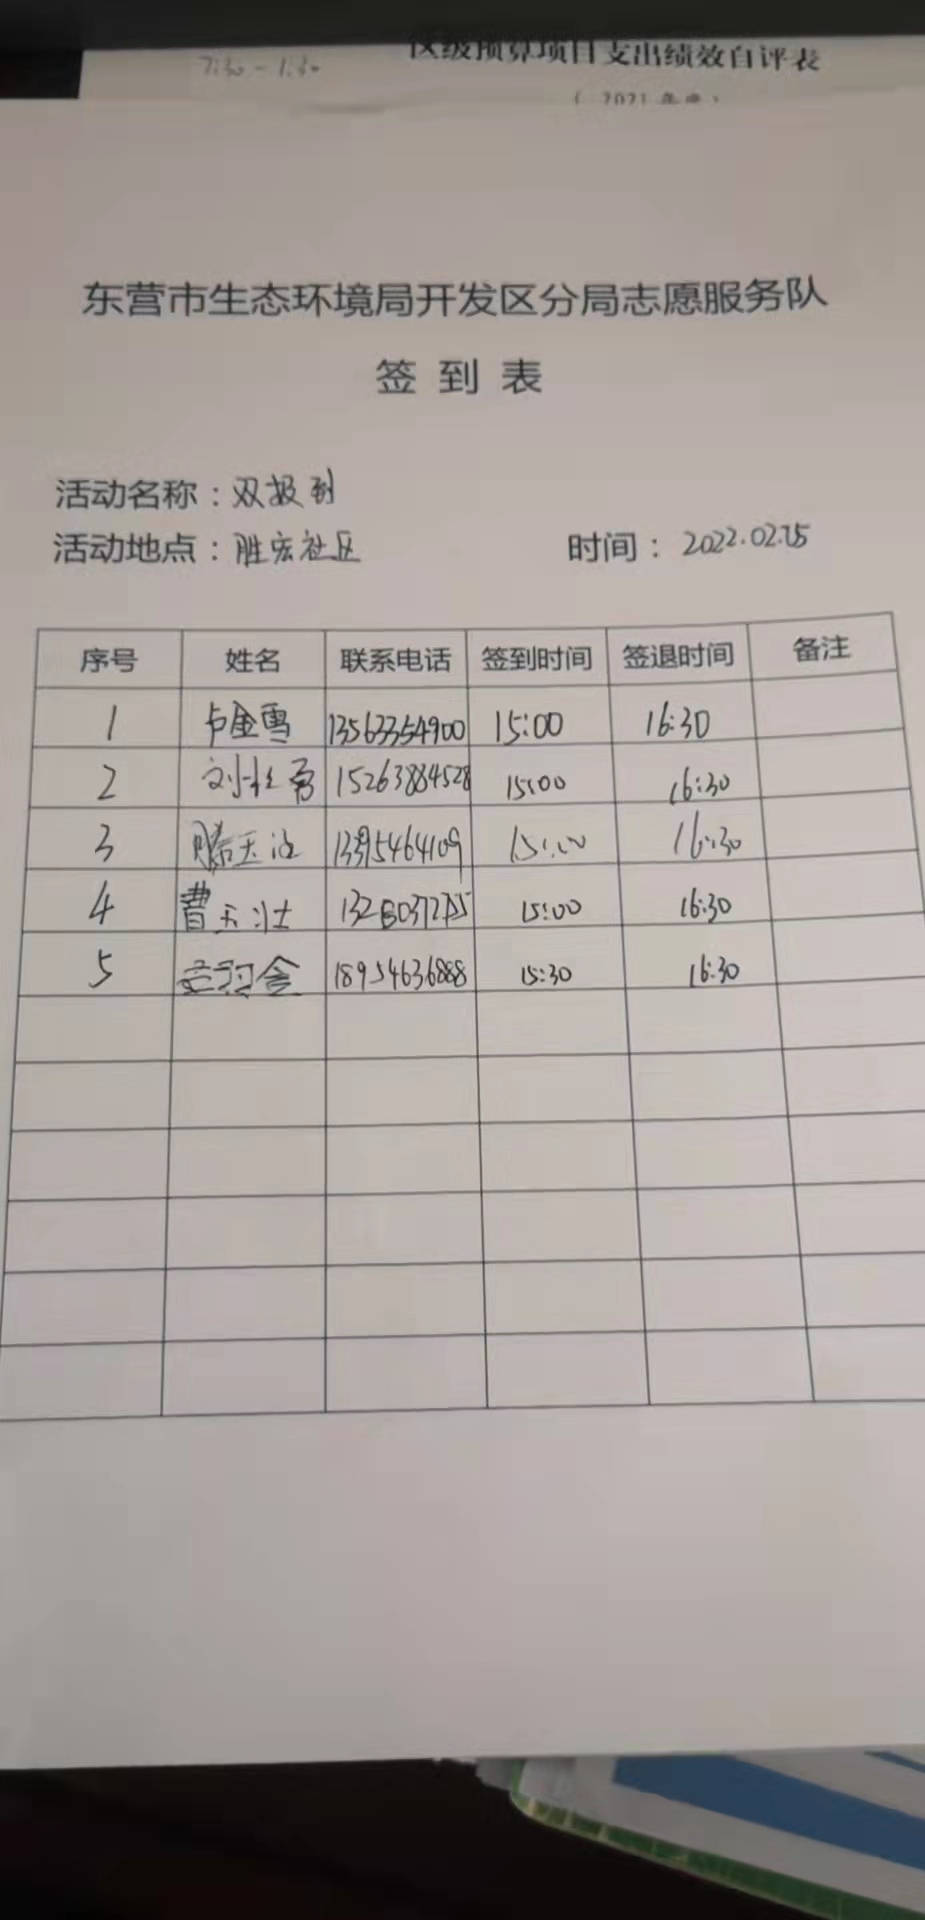 7:30-1:30
区级预算项目支出绩效自评表
东营市生态环境局开发区分局志愿服务队
签到表
活动名称：双报到
活动地点：胜宏社区 时间：2022.02.25
序号 姓名 联系电话 签到时间 签退时间 备注
1 卢金雪 13563354900 15:00 16:30
2 15263884528 15:00 16:30
3 13395464109 15:00 16:30
4 曹玉壮 15:00 16:30
5 18954636888 15:30 16:30